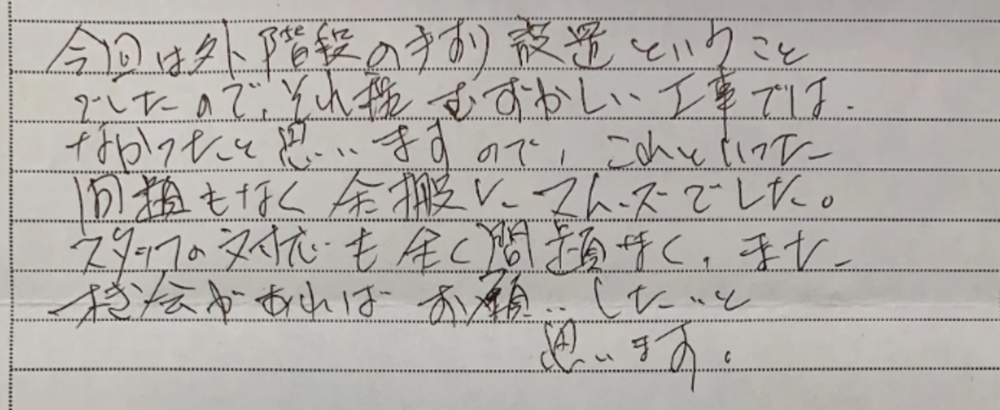 今回は外階段の手すり設置ということ
でしたので、それ程むずかしい工事では
なかったこと思いますので、これといった
問題もなく全搬にスムーズでした。
スタッフの対応も全く問題なく、また
機会があればお願いしたいと
思います。